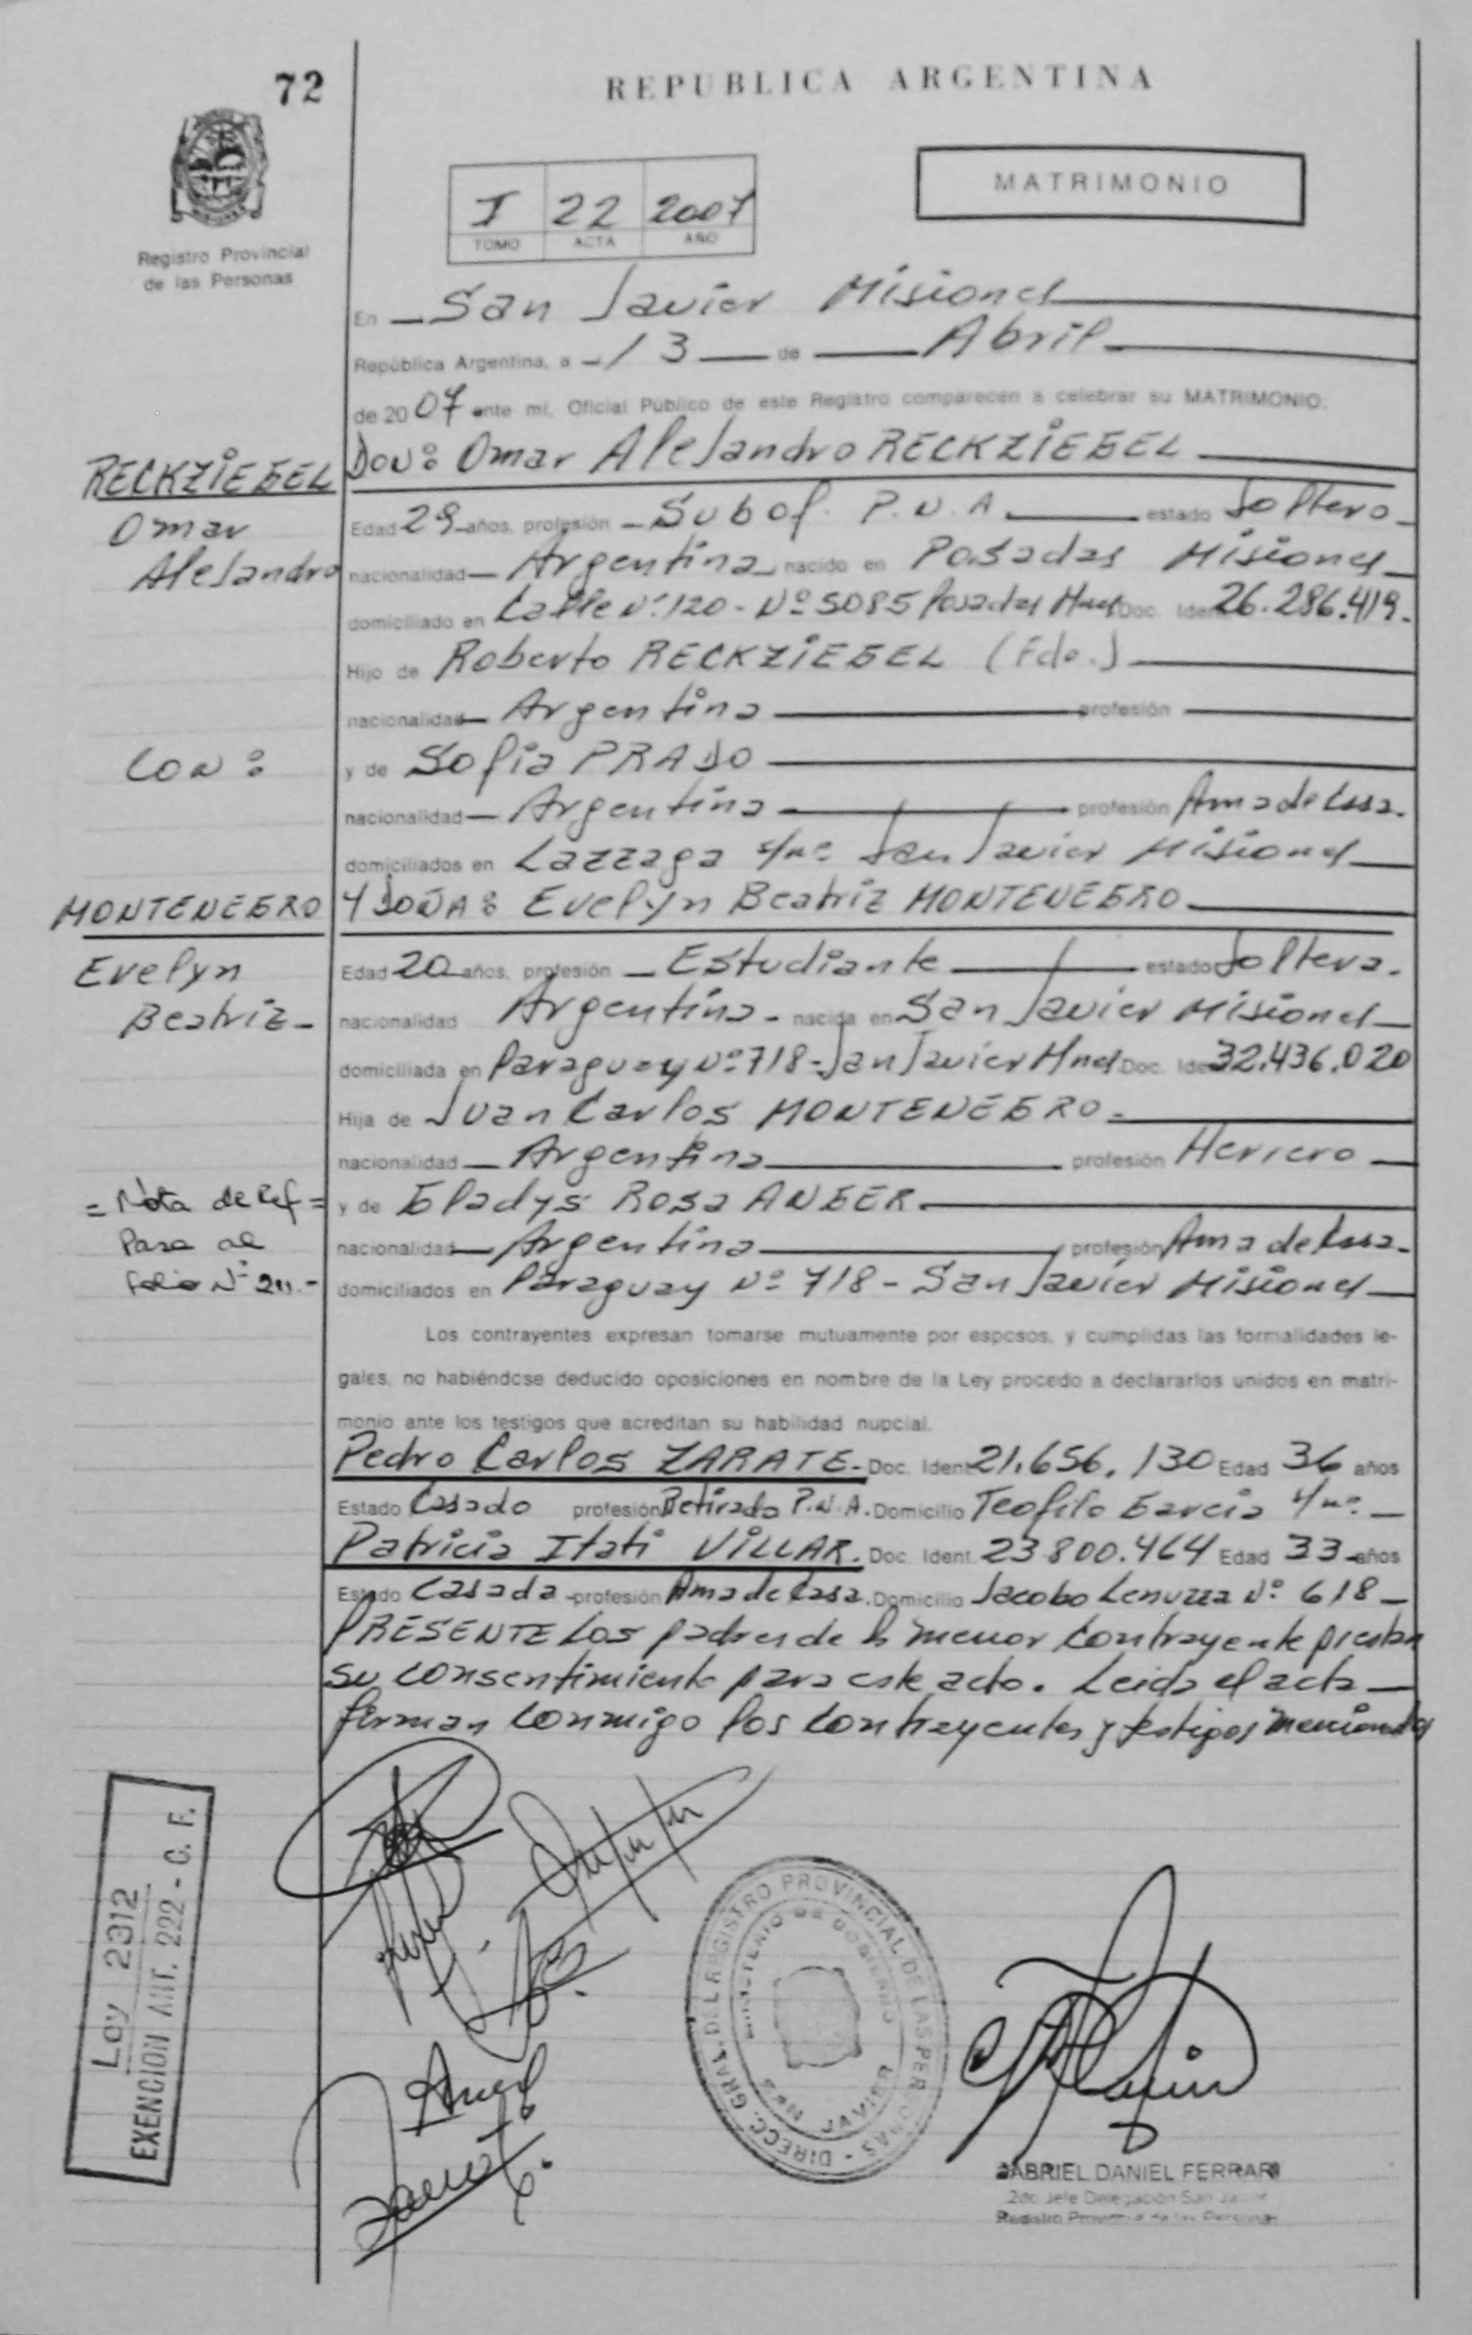 72
REPUBLICA ARGENTINA
MATRIMONIO
I 22 2007
TOMO ACTA AÑO
Registro Provincial
de las Personas
En San Javier Misiones
República Argentina, a 13 de Abril
de 2007 ante mi, Oficial Público de este Registro comparecen a celebrar su MATRIMONIO:
DON: Omar Alejandro RECKZIEGEL
RECKZIEGEL
Omar
Alejandro
Edad 29 años, profesión Subof. P.N.A estado Soltero
nacionalidad Argentina nacido en Posadas Misiones
domiciliado en Calle Nº 120 - Nº 5085 Posadas Mnes Doc. Ident 26.286.419.
Hijo de Roberto RECKZIEGEL (Fdo.)
nacionalidad Argentina profesión
CON:
y de Sofia PRADO
nacionalidad Argentina profesión Ama de Casa.
domiciliados en Lazzaga s/nº San Javier Misiones
MONTENEGRO
Evelyn
Beatriz
Y DOÑA: Evelyn Beatriz MONTENEGRO
Edad 20 años, profesión Estudiante estado Soltera.
nacionalidad Argentina - nacida en San Javier Misiones
domiciliada en Paraguay Nº 718 - San Javier Mnes Doc. Ident 32.436.020
Hija de Juan Carlos MONTENEGRO.
nacionalidad Argentina profesión Herrero
= Nota de Ref =
Pasa al
Folio Nº 211.-
y de Gladys Rosa ANGER
nacionalidad Argentina profesión Ama de Casa.
domiciliados en Paraguay Nº 718 - San Javier Misiones
Los contrayentes expresan tomarse mutuamente por esposos, y cumplidas las formalidades le-
gales, no habiéndose deducido oposiciones en nombre de la Ley procedo a declararlos unidos en matri-
monio ante los testigos que acreditan su habilidad nupcial.
Pedro Carlos ZARATE. Doc. Ident 21.656.130 Edad 36 años
Estado Casado profesión Retirado P.N.A. Domicilio Teofilo Garcia s/nº
Patricia Itati VILLAR. Doc. Ident. 23.800.464 Edad 33 años
Estado Casada profesión Ama de Casa. Domicilio Jacobo Lenuzza Nº 618
PRESENTE Los padres de la menor contrayente prestan
su consentimiento para este acto. Leida el acta
firman conmigo los contrayentes y testigos mencionados
Ley 2312
EXENCION ART. 222 - C. F.
DIRECC. GRAL. DEL REGISTRO PROVINCIAL DE LAS PERSONAS
MINISTERIO DE GOBIERNO
SAN JAVIER
GABRIEL DANIEL FERRARI
2do Jefe Delegación San Javier
Registro Provincial de las Personas